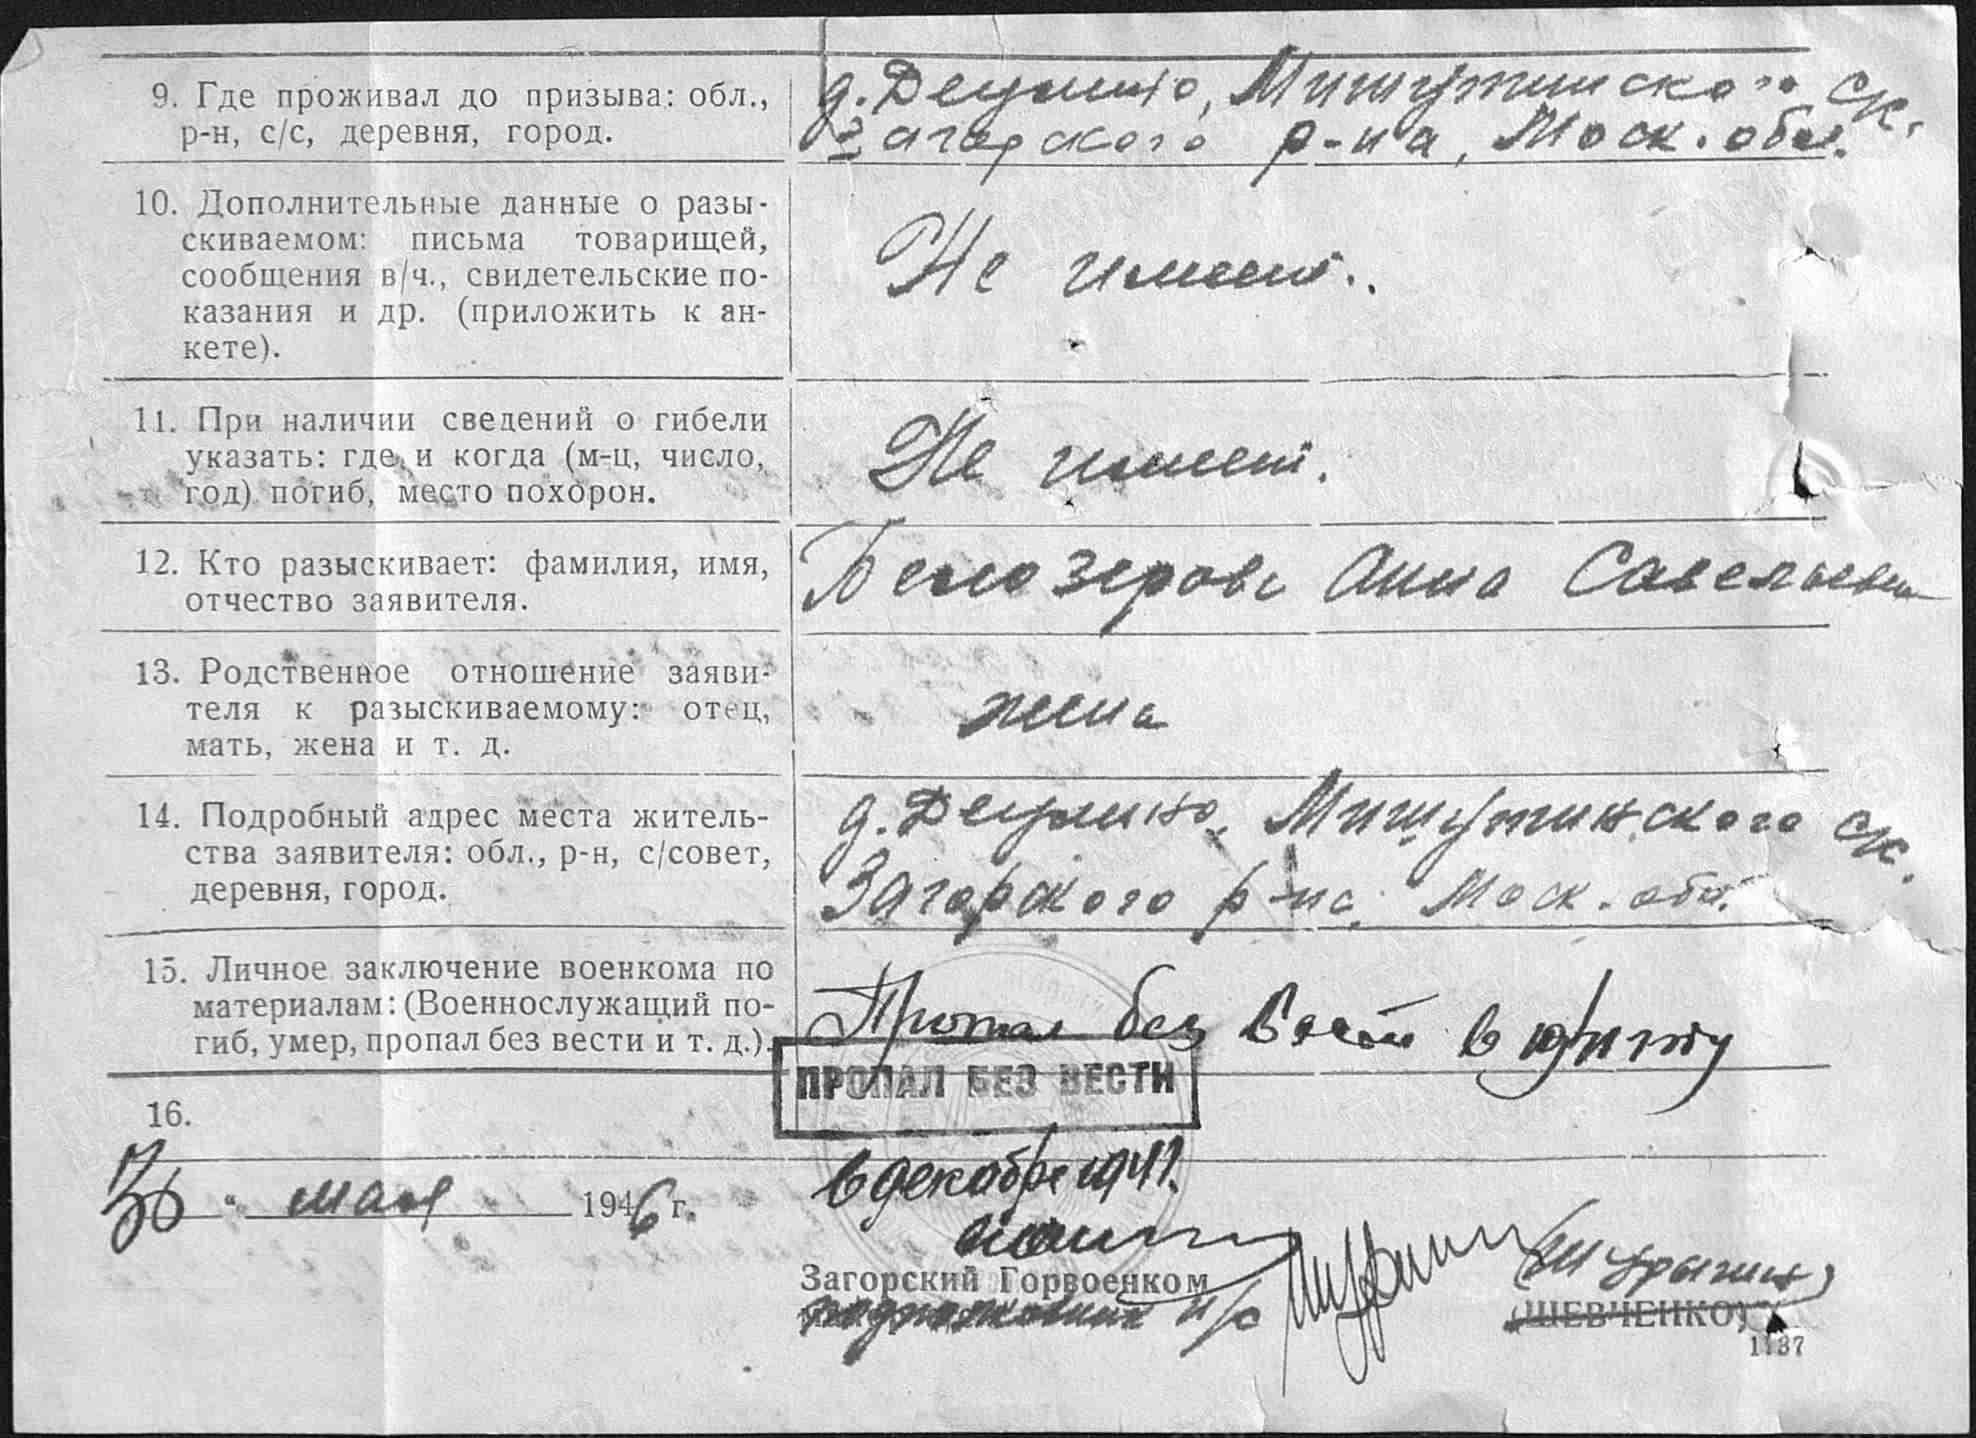 9. Где проживал до призыва: обл.,
р-н, с/с, деревня, город.
д. Деулино, Мишутинского с/с.
Загорского р-на, Моск. обл.
10. Дополнительные данные о разы-
скиваемом: письма товарищей,
сообщения в/ч., свидетельские по-
казания и др. (приложить к ан-
кете).
Не имеет.
11. При наличии сведений о гибели
указать: где и когда (м-ц, число,
год) погиб, место похорон.
Не имеет.
12. Кто разыскивает: фамилия, имя,
отчество заявителя.
Белозерова Анна Савельевна
13. Родственное отношение заяви-
теля к разыскиваемому: отец,
мать, жена и т. д.
жена
14. Подробный адрес места житель-
ства заявителя: обл., р-н, с/совет,
деревня, город.
д. Деулино, Мишутинского с/с.
Загорского р-на, Моск. обл.
15. Личное заключение военкома по
материалам: (Военнослужащий по-
гиб, умер, пропал без вести и т. д.).
Пропал без вести в
ПРОПАЛ БЕЗ ВЕСТИ
16.
в декабре 1941.
мая 1946 г.
Загорский Горвоенком
подполковник и/с
(Шурыгин)
(ШЕВЧЕНКО)
1137